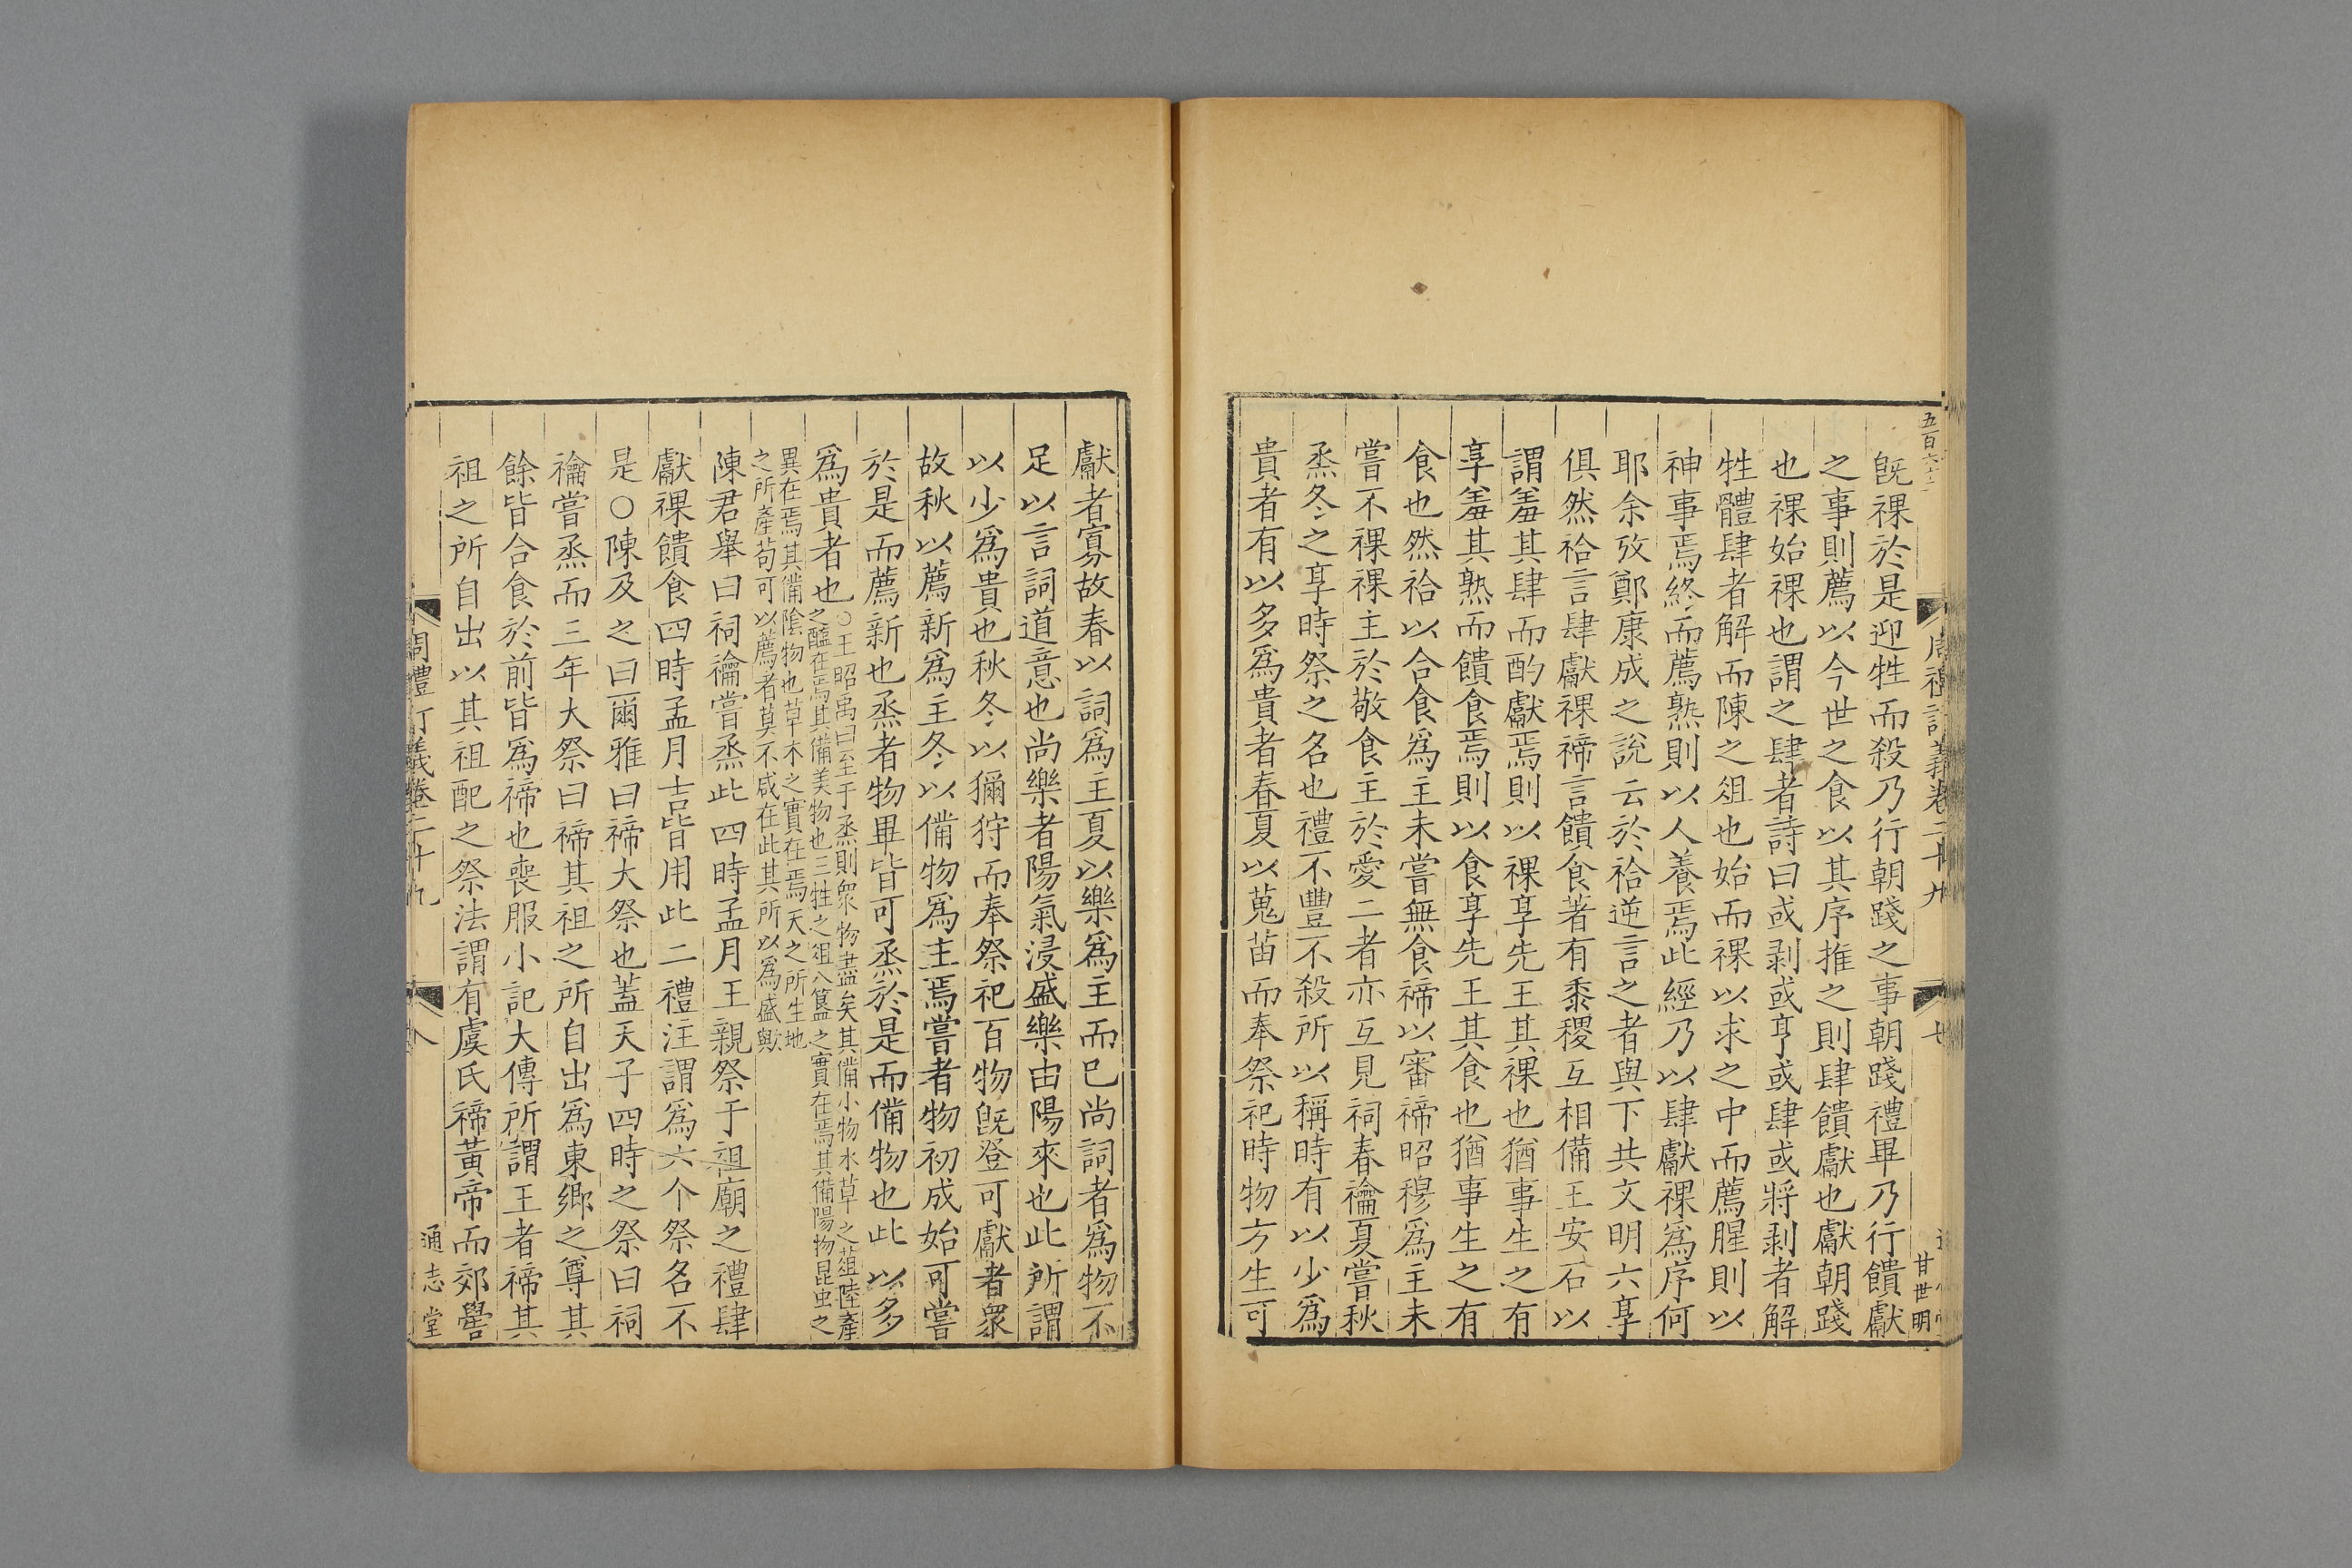 既祼於是迎牲而殺乃行朝踐之事朝踐禮畢乃行饋獻
之事則薦以今世之食以其序推之則肆饋獻也獻朝踐
也祼始祼也謂之肆者詩曰或剥或亨或肆或將剥者解
牲體肆者解而陳之俎也始而祼以求之中而薦腥則以
神事焉終而薦熟則以人養焉此經乃以肆獻祼爲序何
耶余攷鄭康成之說云於祫逆言之者與下共文明六享
俱然祫言肆獻祼禘言饋食著有黍稷互相備王安石以
謂羞其肆而酌獻焉則以祼享先王其祼也猶事生之有
享羞其熟而饋食焉則以食享先王其食也猶事生之有
食也然祫以合食爲主未嘗無食禘以審禘昭穆爲主未
嘗不祼祼主於敬食主於愛二者亦互見祠春禴夏嘗秋
烝冬之享時祭之名也禮不豐不殺所以稱時有以少爲
貴者有以多爲貴者春夏以蒐苗而奉祭祀時物方生可
獻者寡故春以詞爲主夏以樂爲主而已尚詞者爲物不
足以言詞道意也尚樂者陽氣浸盛樂由陽來也此所謂
以少爲貴也秋冬以獮狩而奉祭祀百物既登可獻者衆
故秋以薦新爲主冬以備物爲主焉嘗者物初成始可嘗
於是而薦新也烝者物畢皆可烝於是而備物也此以多
爲貴者也
○王昭禹曰至于烝則衆物盡矣其備小物水草之菹陸產
之醢在焉其備美物也三牲之俎八簋之實在焉其備陽物昆虫之
異在焉其備陰物也草木之實在焉天之所生地
之所產苟可以薦者莫不咸在此其所以爲盛歟
陳君舉曰祠禴嘗烝此四時孟月王親祭于祖廟之禮肆
獻祼饋食四時孟月吉皆用此二禮注謂爲六个祭名不
是○陳及之曰爾雅曰禘大祭也蓋天子四時之祭曰祠
禴嘗烝而三年大祭曰禘其祖之所自出爲東鄉之尊其
餘皆合食於前皆爲禘也喪服小記大傳所謂王者禘其
祖之所自出以其祖配之祭法謂有虞氏禘黃帝而郊嚳
五百六十二
周禮訂義卷二十九
甘世明
周禮訂義卷二十九
八
通志堂